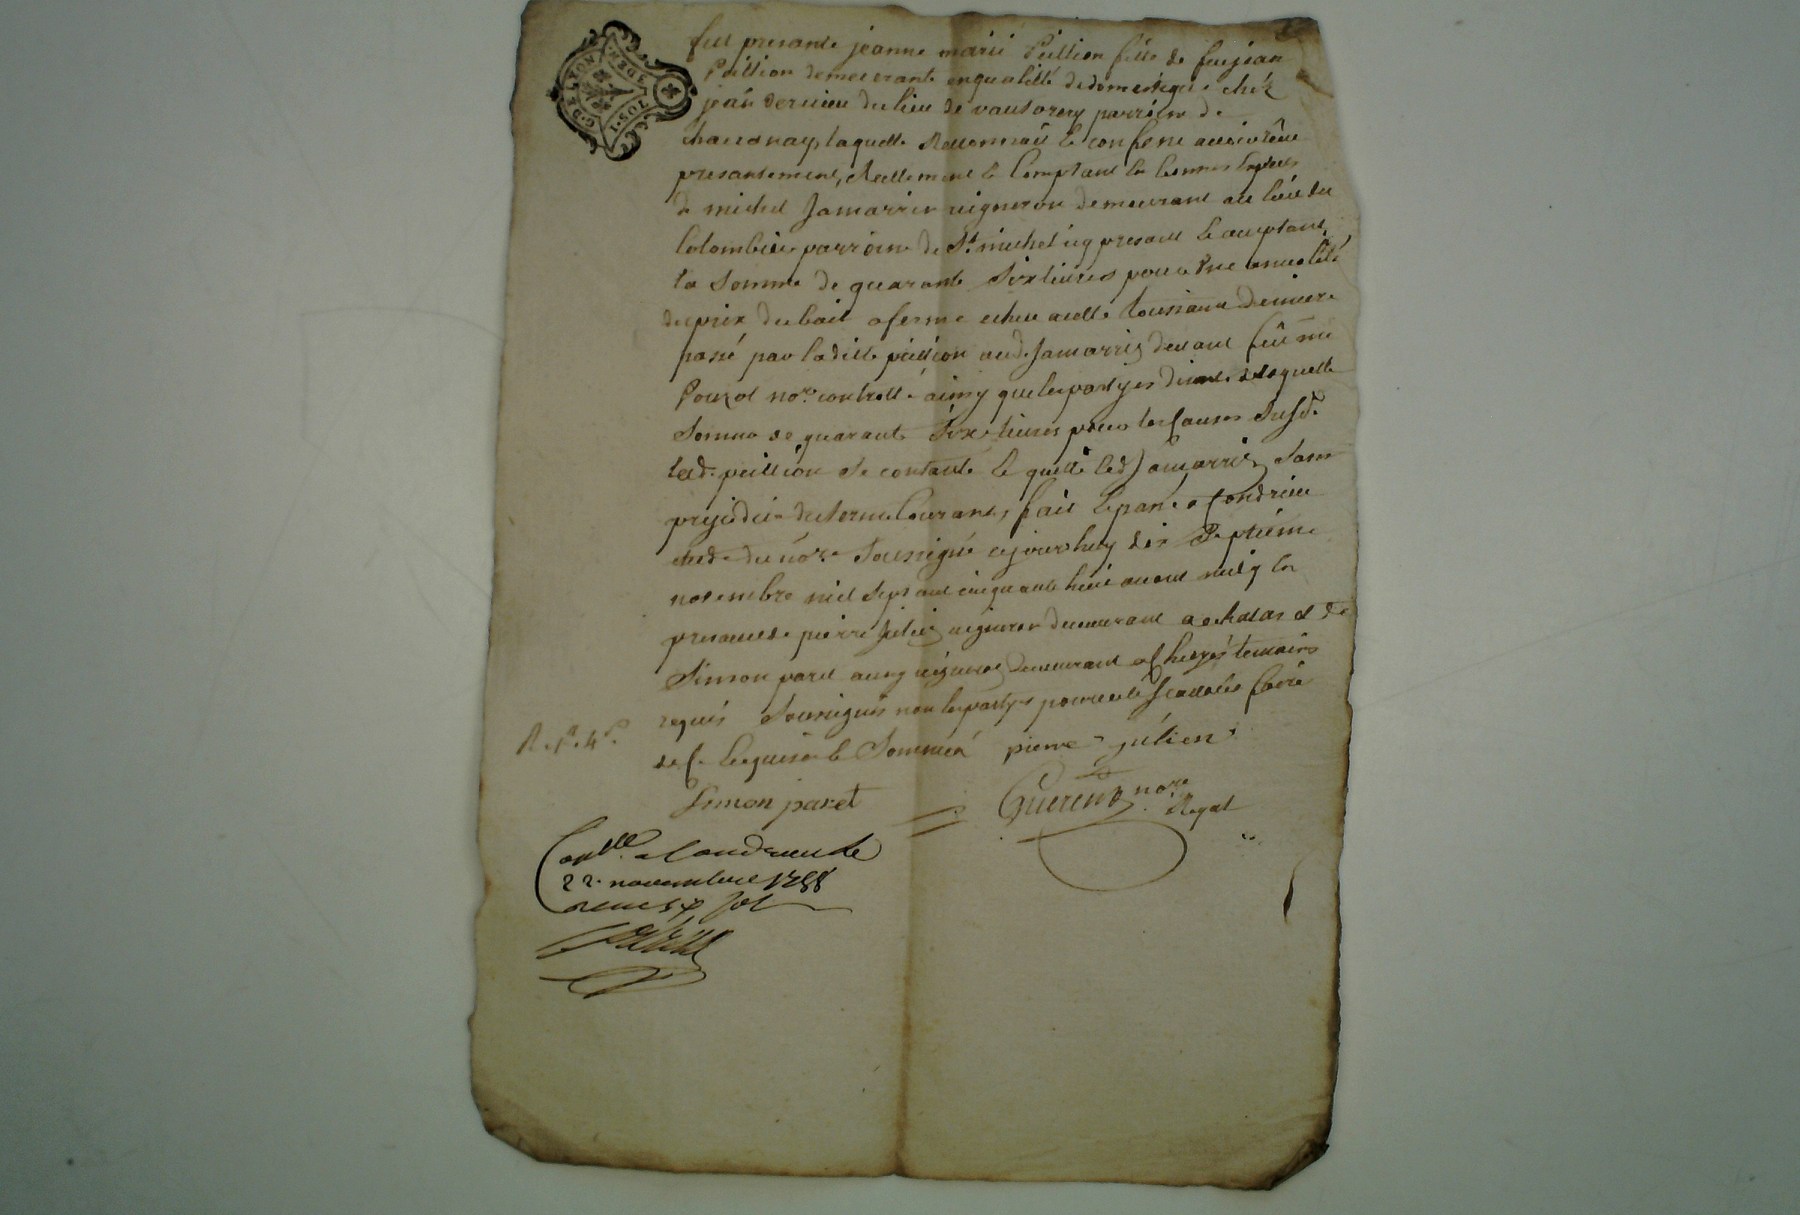 G. DE LYON
3 DEN.
fut presante jeanne marie Peillion fille de feu jean
Peillion demeurante en qualitté de domestique chéz
jean dervieu du lieu de parroisse de
laquelle reconnait & confesse avoir reue
presantement, reellement & Comptant en bonnes Especes
de michel Jamarrin vigneron demeurant au lieu du
Colombier parroisse de St. michel icy presant & acceptant,
la Somme de quarante Six livres pour Une annuelité
du prix du bail a ferme echeu a cette toussaint derniere
passé par laditte peillion aud. Jamarrin devant feu me
Pouzol nore. controllé ainsy que les partyes disent de laquelle
Somme de quarante Six livres pour les Causes Susd.
lad. peillion Se contante & quitte led. Jamarrin Sans
prejudice du terme Courant, fait & passé a Condrieu
etude du nore. Soussigné cejourdhuy dix Septieme
novembre mil Sept cent cinquante huit avant midy en
presance de pierre Julien vigneron demeurant a echalas & de
Simon paret aussy vigneron demeurant a temoins
requis Soussignés non les partyes pour ne le Scavoir faire
de ce Enquise & Sommée pierre julien
R. 1ll. 4s.
Simon paret
Guerin nore
Royal
Conllé a Condrieu le
22. novembre 1758